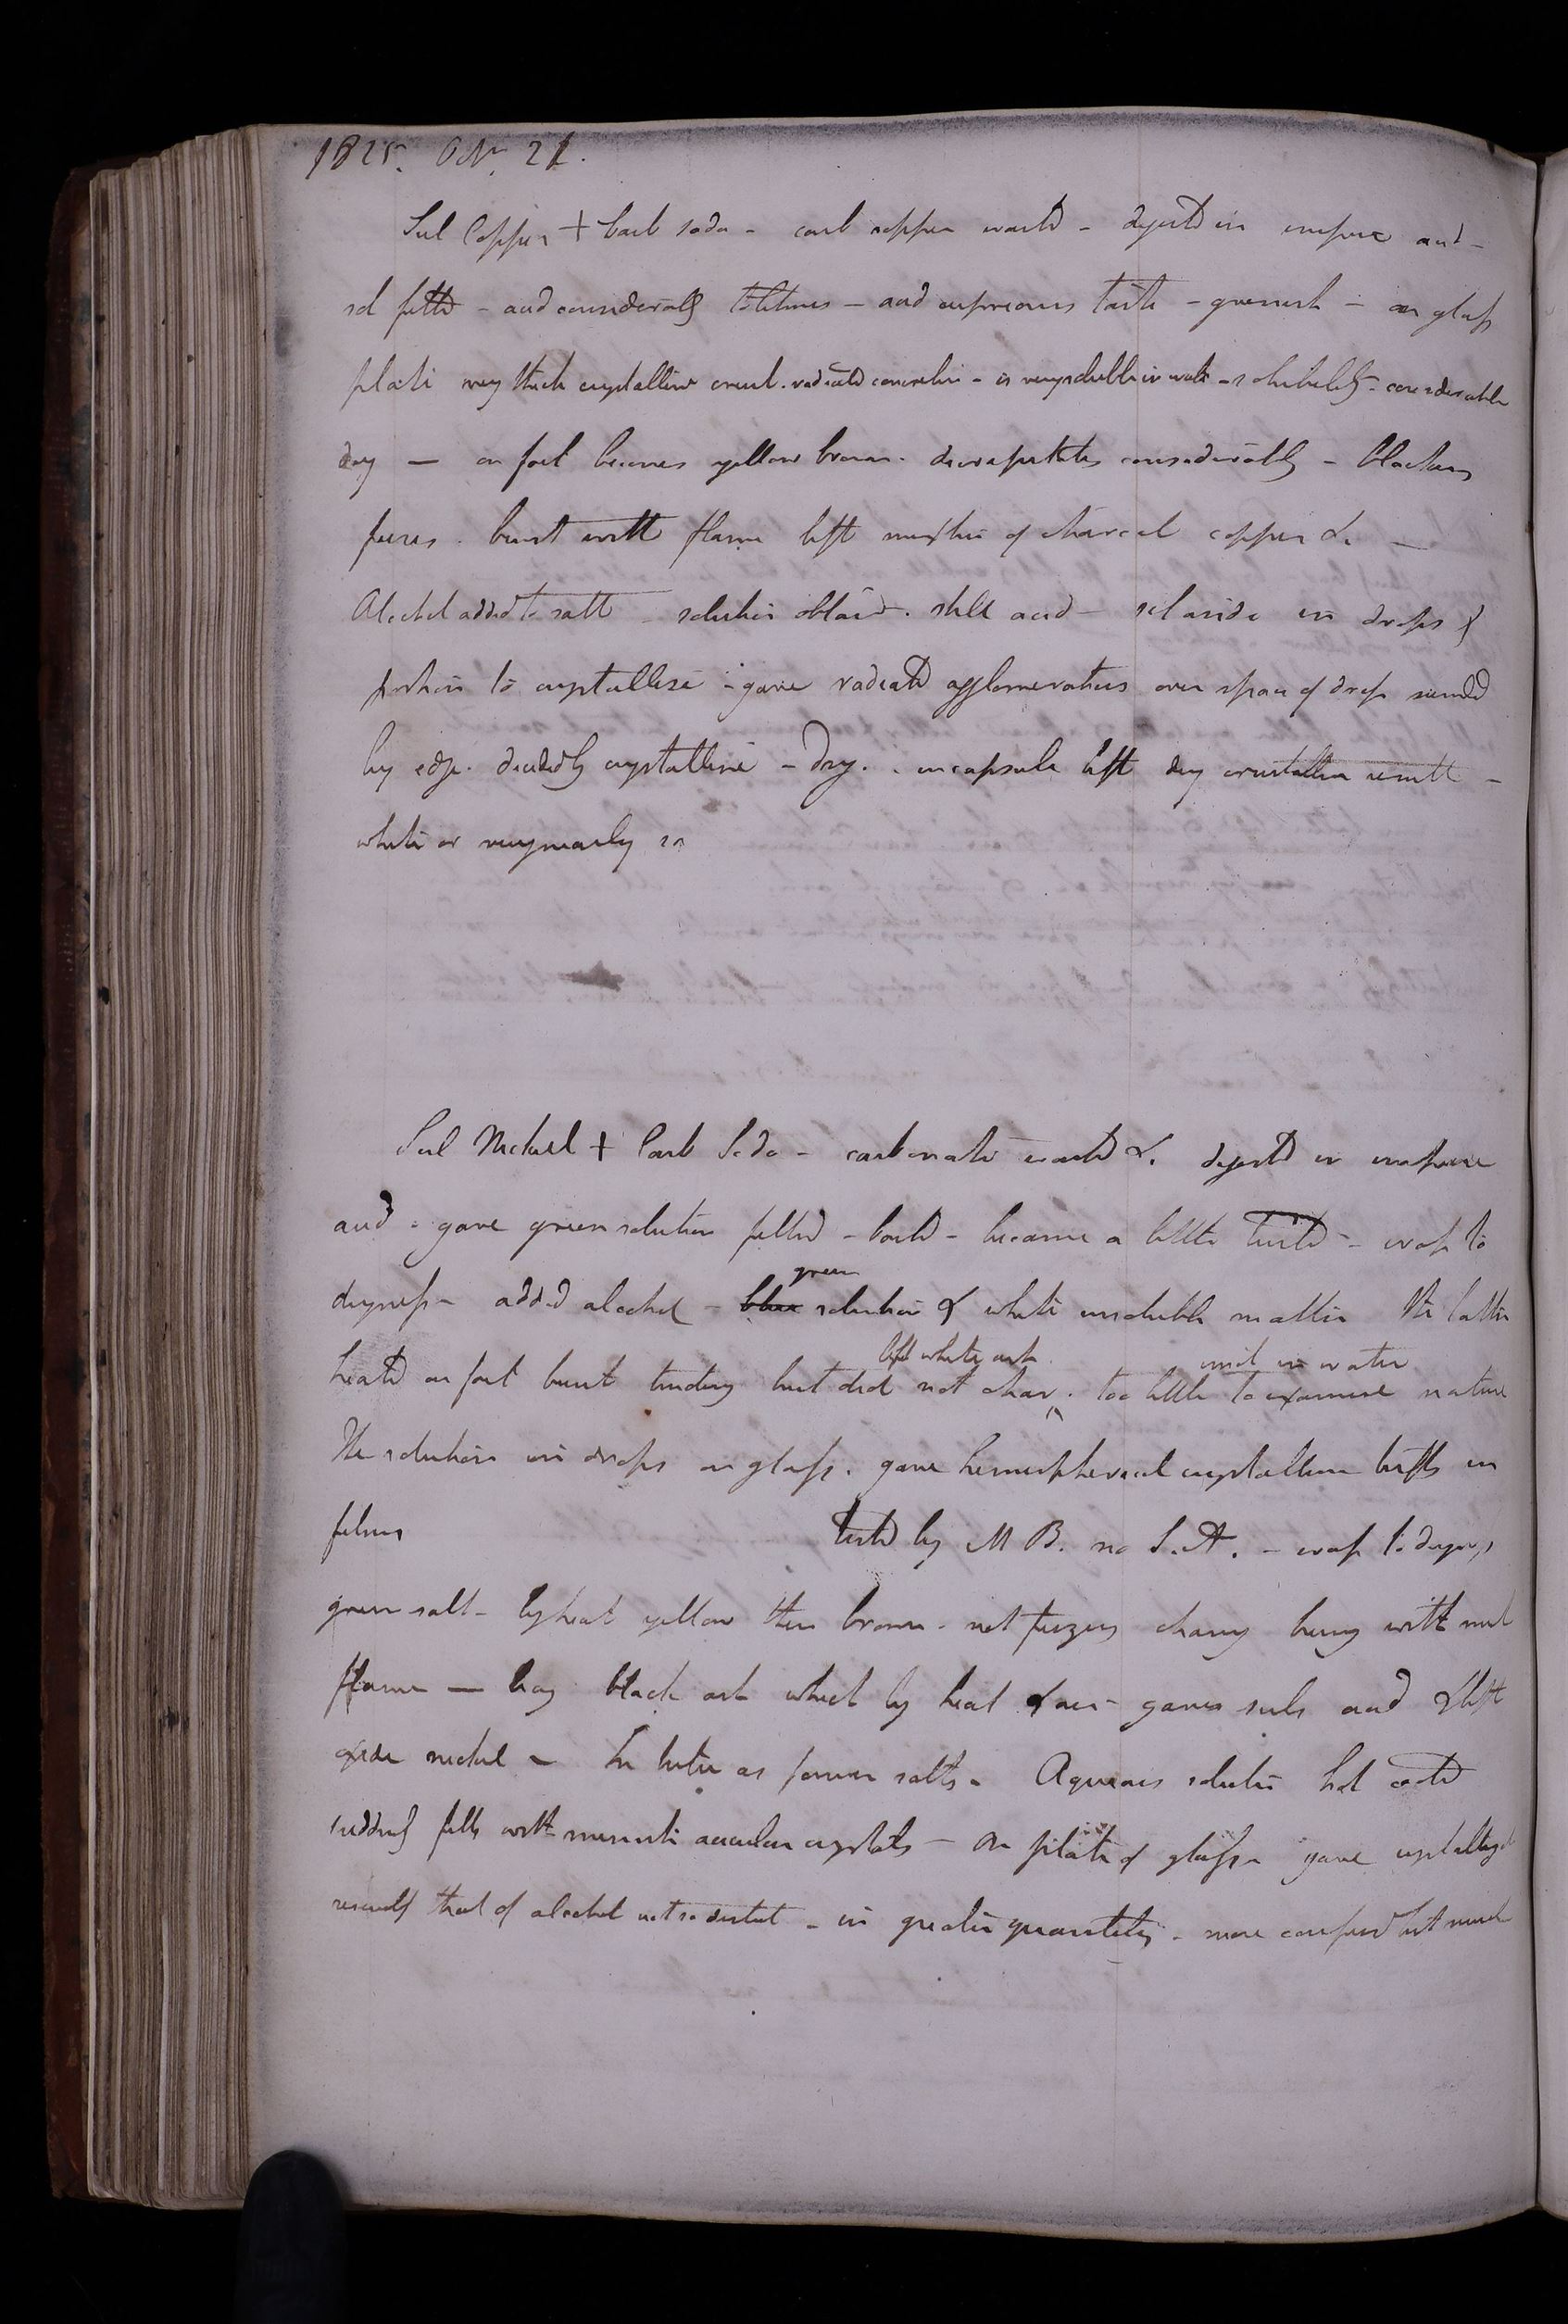 1825. Octr. 21.
Sul Copper + Carb soda - carb copper washd - digestd in impure acid -
sol filtd - acid considerably to litmus - acid cupreous taste - greenish - on glass
plate very thick crystalline crust. radiated concretion - is very soluble in water - solubility - considerable
dry — on foil becomes yellow brown. decrepitates considerably - blackens
fuses. burnt with flame left mixture of charcoal copper &c —
Alcohol added to salt - solution obtaind. still acid - set aside in drops &
portion to crystallise - gave radiatd agglomerations over space of drop
by edge. decidedly crystalline - Dry. in capsule left dry crystalline result -
white or very nearly so
Sul Nickel + Carb Soda - carbonate washd &c. digestd in impure
acid - gave green solution filtd - boild - became a little turbid - evap to
dryness - added alcohol - blue green solution & white insoluble matter the latter
heatd on foil burnt but did not char. left white ash. too little to examine nature insol in water
The solution in drops on glass. gave hemispherical crystalline tufts in
films testd by M B. no S.A. - evap to dryness
green salt - by heat yellow then brown - not fuzing charg burng with much
flame — leavg black ash which by heat & air - gave sulc acid & left
oxide nickel - as former salts - Aqueous solution hot coold
suddenly fills with minute acicular crystals - On plate of glass gave
resemblg that of alcohol not so distinct - in greater quantity - more confused but much